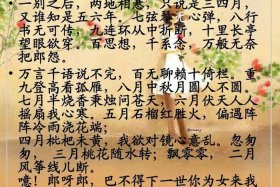 一别之后，两地相悬，只说是三四月，
又谁知是五六年，七弦琴无心弹，八行
书无可传，九连环从中折断，十里长亭
望眼欲穿。百思想，千系念，万般无奈
把郎怨。
万言千语说不完，百无聊赖十倚栏。重
九登高看孤雁，八月中秋月圆人不圆。
七月半烧香秉烛问苍天，六月伏天人人
摇扇我心寒，五月石榴红胜火，偏遇阵
阵冷雨浇花端；
四月枇杷未黄，我欲对镜心意乱。忽匆
匆，三月桃花随水转；飘零零，二月
风筝线儿断。
噫！郎呀郎，巴不得下一世你为女来我